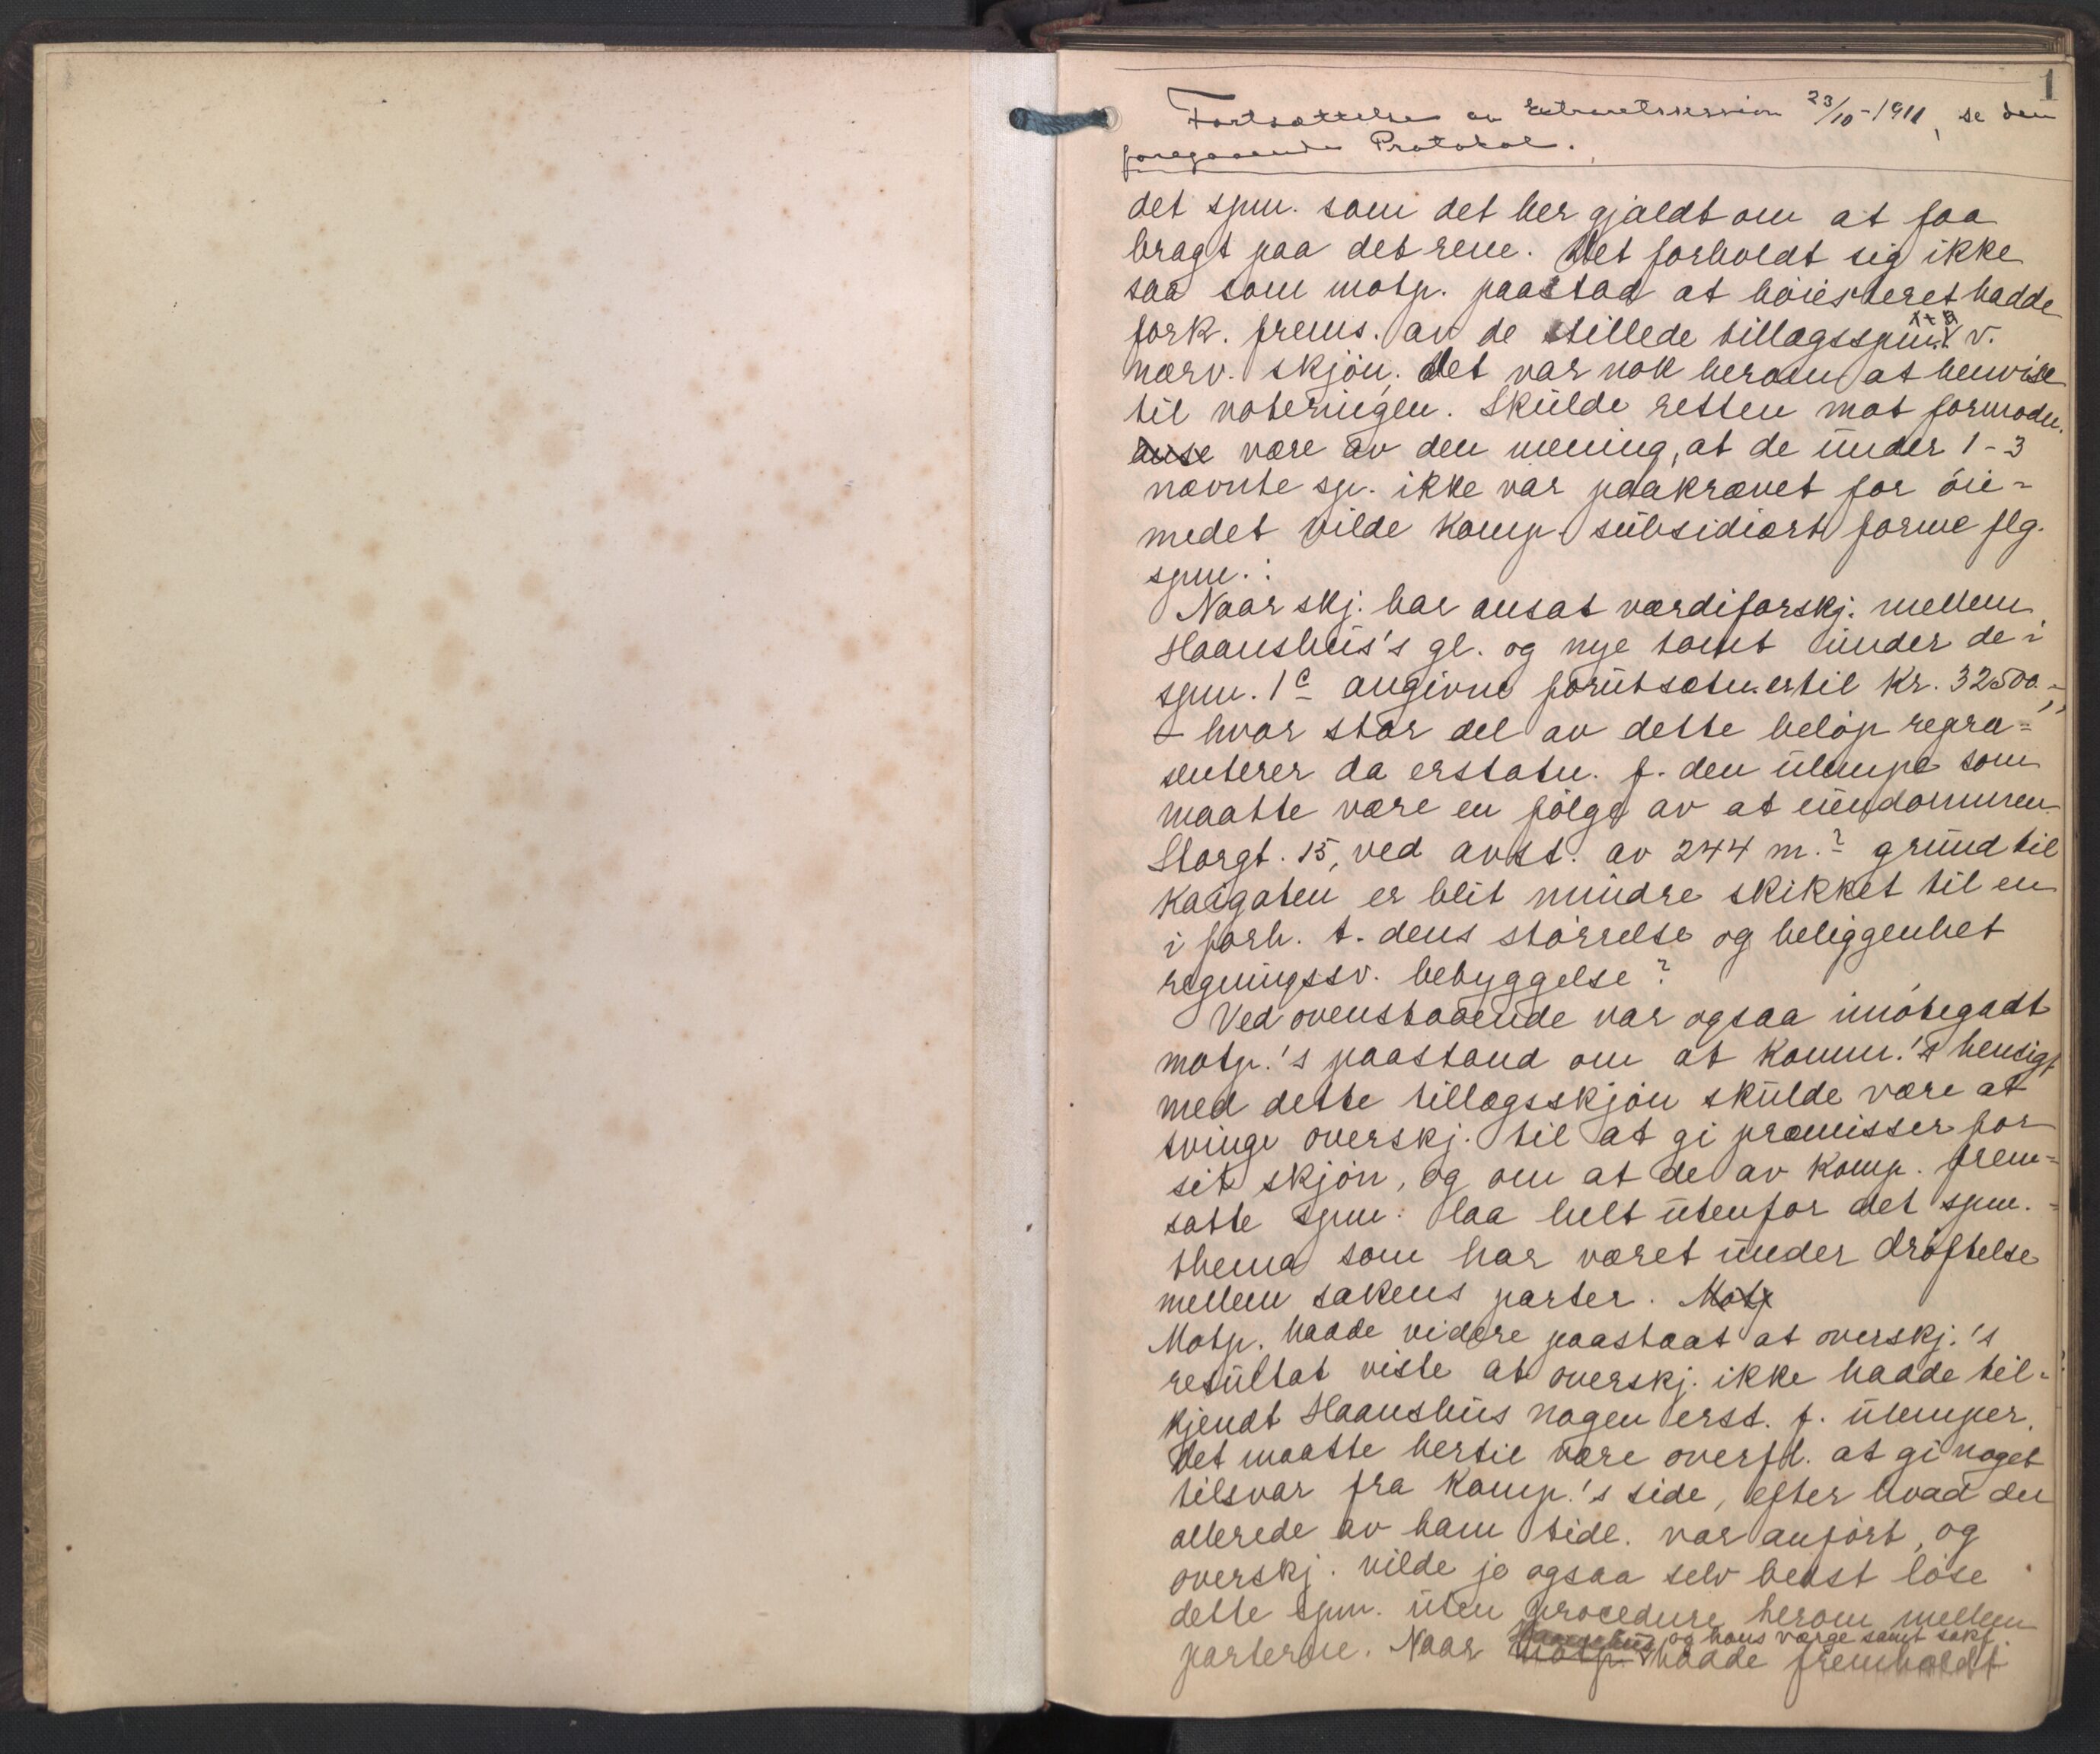 1
Fortsættelse av Extraretssession 23/10-1911, se den
foregaaende Protokol.
det spm. som det her gjaldt om at faa
bragt paa det rene. Det forholdt sig ikke
saa som motp. paastod at høiesteret hadde
fork. frems. av de stillede tillægsspm. v.
nærv. skjøn; det var nok herom at henvise
til voteringen. Skulde retten mot formodn.
være av den mening, at de under 1-3
nævnte sp. ikke var paakrævet for øie-
medet vilde komp. subsidiært forme flg.
spm.:
Naar skj. har ansat værdiforskj. mellem
Haanshus's gl. og nye tomt under de i
spm. 1c angivne forutsætn. er til Kr. 32500.-,
- hvor stor del av dette beløp repræ-
senterer da erstatn. f. den ulempe som
maatte være en følge av at eiendommen
Storgt. 15, ved avst. av 244 m.2 grund til
Kaigaten er blit mindre skikket til en
i forh. t. dens størrelse og beliggenhet
regningssv. bebyggelse?
Ved ovenstaaende var ogsaa imøtegaadt
motp.'s paastand om at komm.'s hensigt
med dette tillægsskjøn skulde være at
tvinge overskj. til at gi præmisser for
sit skjøn, og om at de av komp. frem-
satte spm. laa helt utenfor det spm.-
thema som har været under drøftelse
mellem sakens parter. Motp
Motp. hadde videre paastaat at overskj.'s
resultat viste at overskj. ikke hadde til-
kjendt Haanshus nogen erst. f. ulemper.
Det maatte hertil være overfl. at gi noget
tilsvar fra komp.'s side, efter hvad der
allerede av ham tidl. var anført, og
overskj. vilde jo ogsaa selv bedst løse
dette spm. uten procedure herom mellem
parterne. Naar Haanshus og hans værge samt sakf.
motp. hadde fremholdt